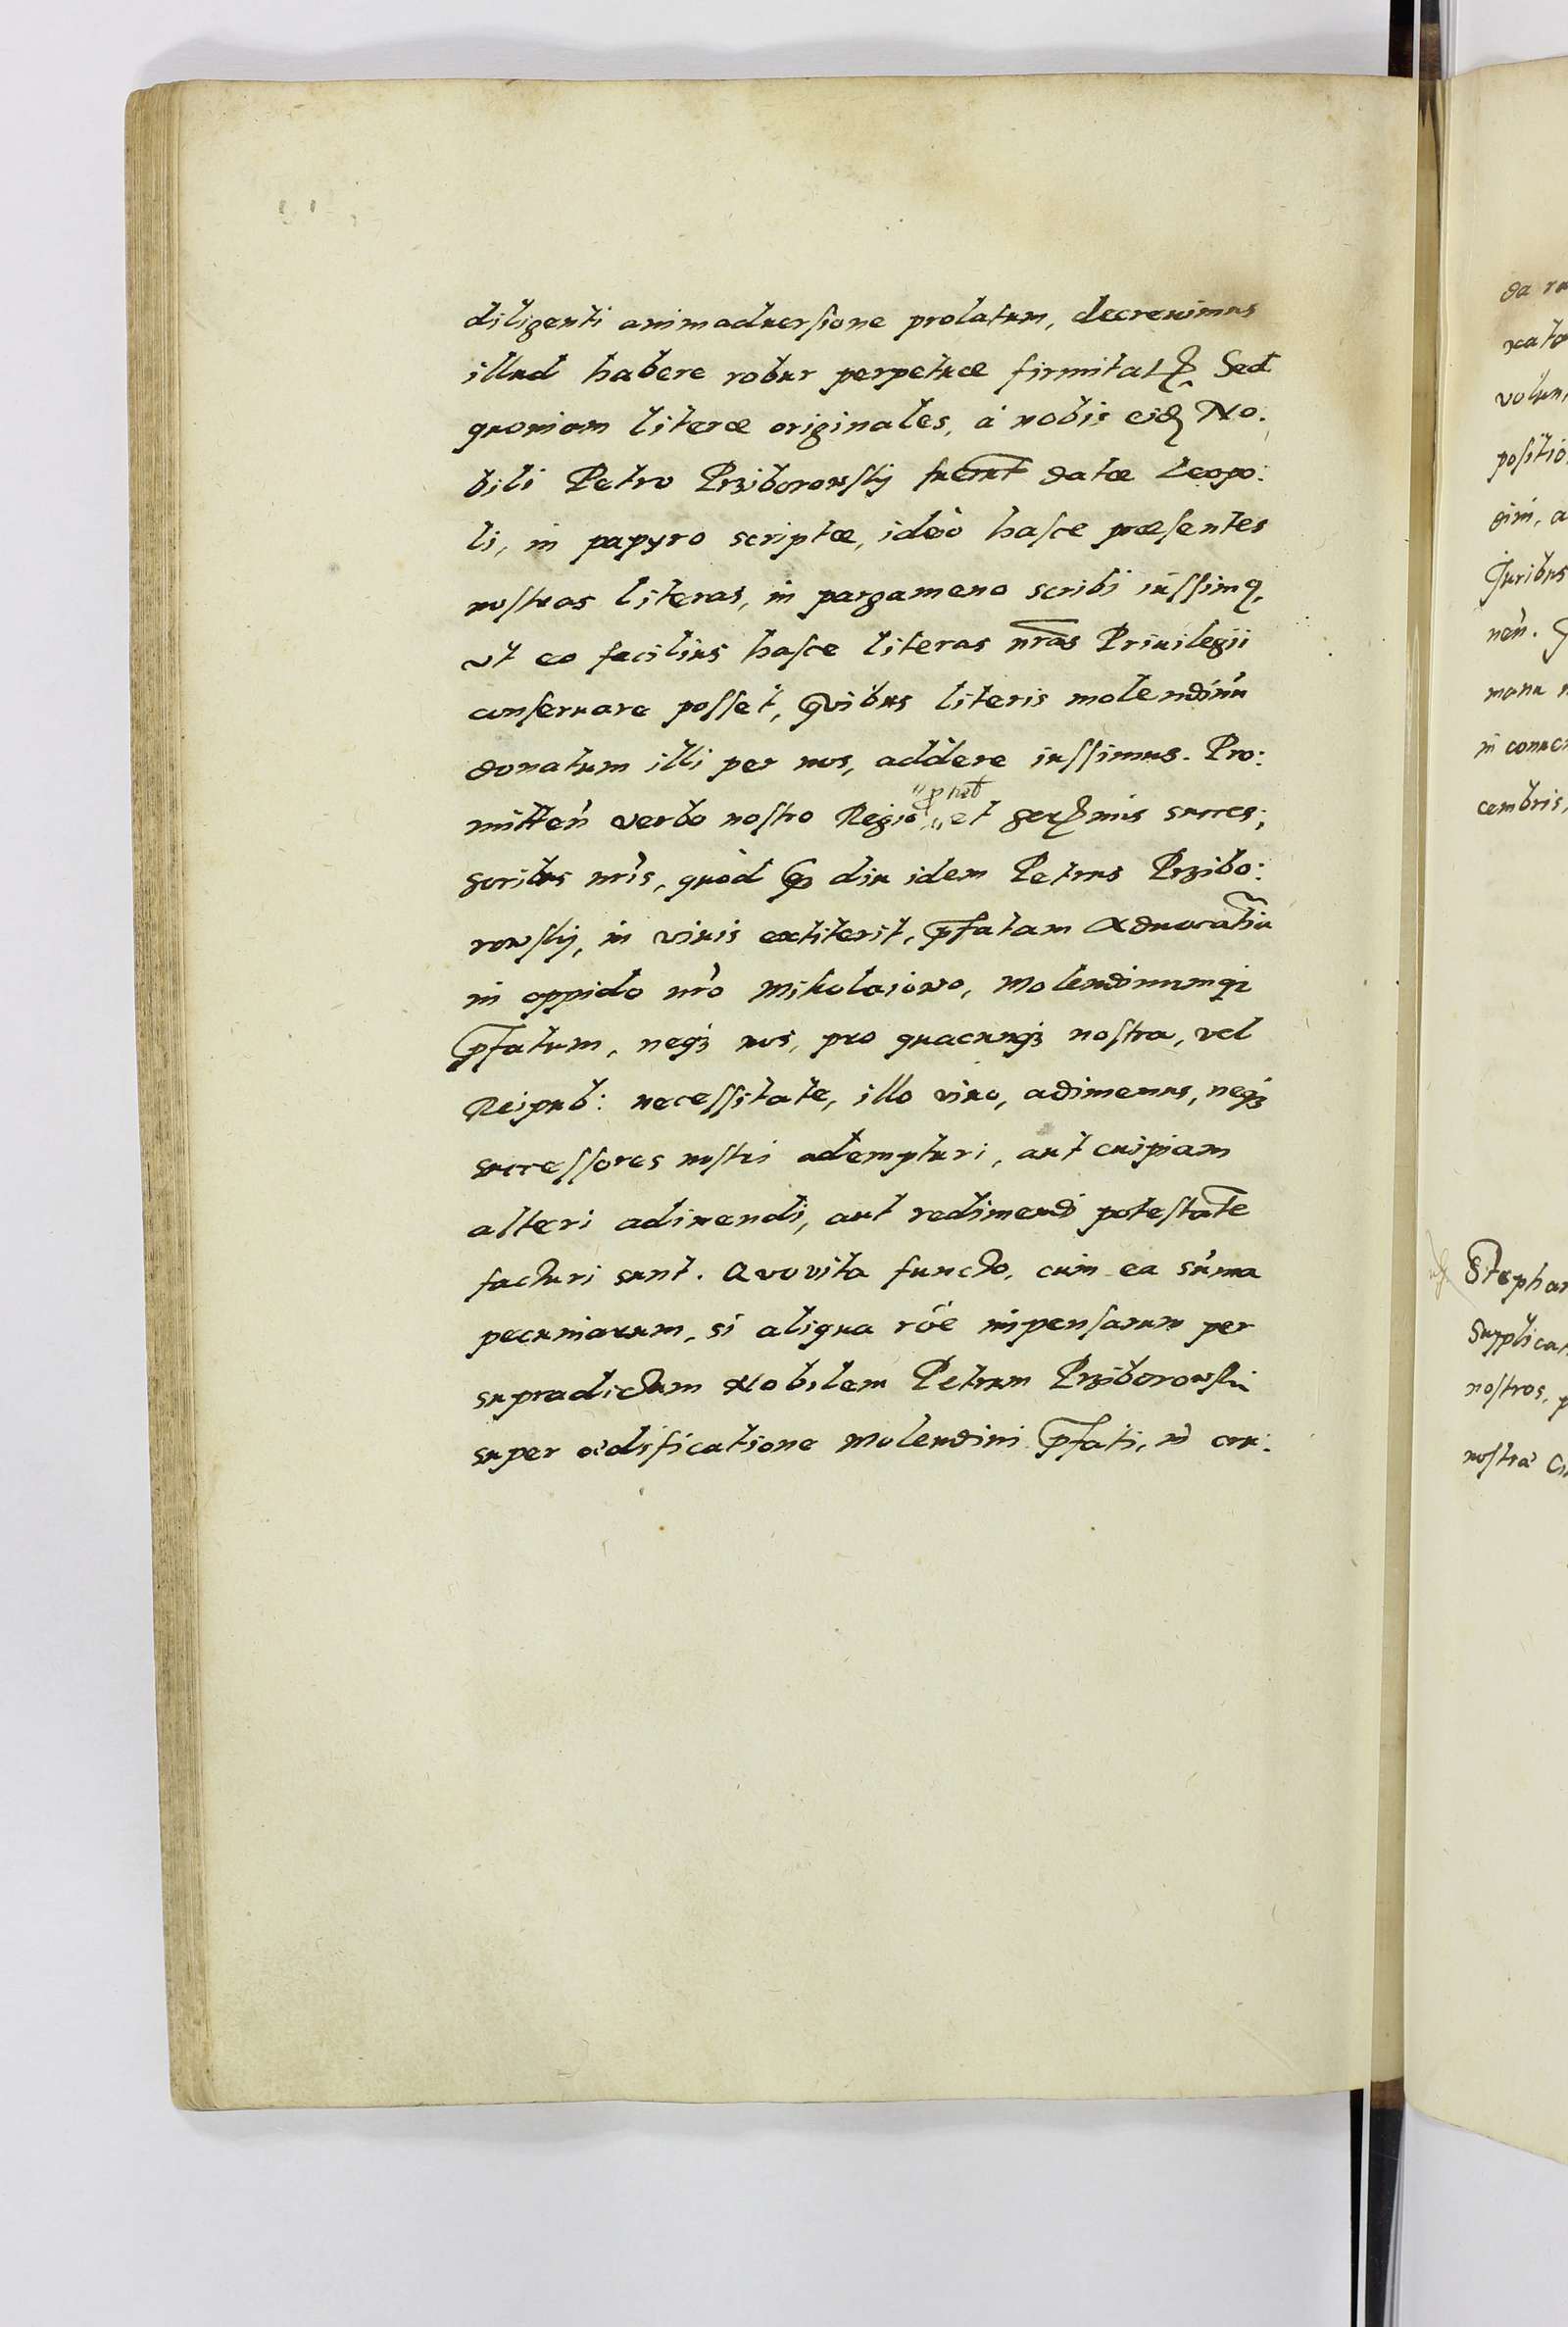 diligenti animaduersione prolatum, decreuimus
illud habere robur perpetuæ firmitatis. Sed
quoniam literæ originales, à nobis eidem No:
bili Petro Prziborowskij fuerunt datæ Leopo:
li, in papyro scriptæ, ideò hasce præsentes
nostras literas, in pargameno scribi iussimq,
vt eo facilius hasce literas nras Priuilegii
conseruare posset, Quibus literis molendinũ
donatum illi per nos, addere iussimus. Pro:
mitteñ verbo nostro Regio, et serenimis succes:
soribus nris, quòd quamdiu idem Petrus Przibo:
rowskij, in viuis extiterit, pfatam Aduocatiã
in oppido nro Mikolaiowo, Molendinumq3
pfatum, neq3 nos, pro quacunq3 nostra, vel
Reipub: necessitate, illo viuo, adimemus, neq3
successores nostri adempturi, aut cuipiam
alteri adimendi, aut redimendi potestate
facturi sunt. Quo vita functo, cum ea súma
pecuniarum, si aliqua róe inpensarum per
supradictum Nobilem Petrum Prziborowski
super ædificatione Molendini pfati, in cou:
da
positio
Juribus
manu
cembris,
Stephan
Supplica
nostros,
nostra